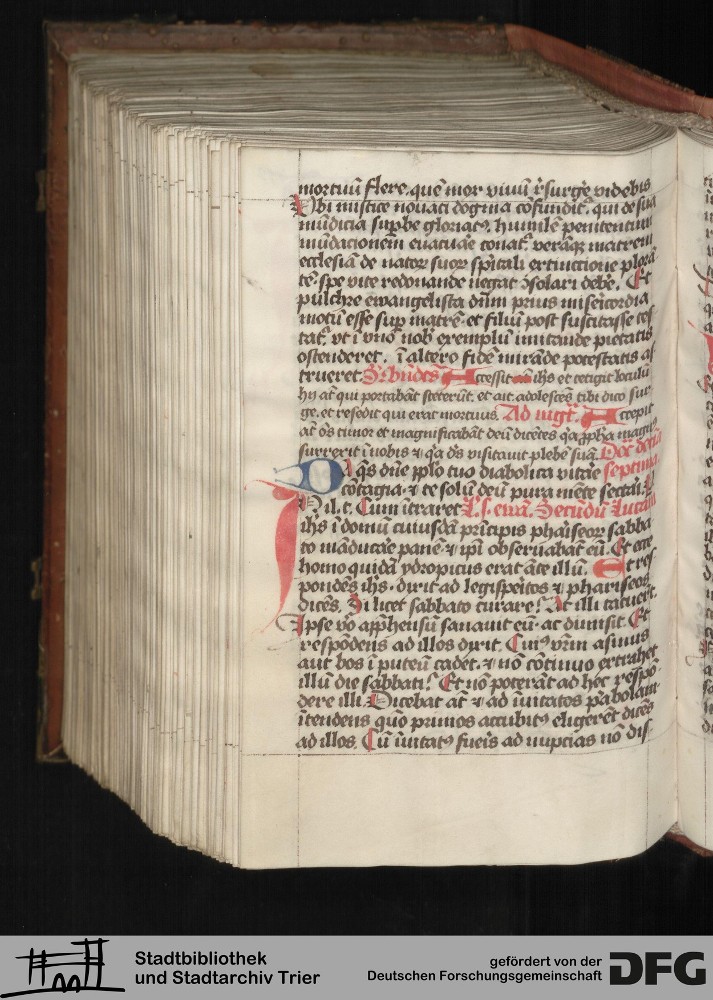 mortuū flere. quē mox vivū resurge videbis
Ubi mistice novati dogma cōfundit². qui de sua
mūdicia supbe gloriat², humilē penitentium
mūdacionem evacuare conat². verāqz matrem
ecclesiā de nator suor spirituali extinccione plorā
tē. spe vite redonande negat ɔsolari debe. Et
pulchre ewangelista dnm prius misericordia
motū esse sup matrē. et filiū post suscitasse tes
tat². vt ī vno nob exemplū imitande pietatis
ostenderet. ī altero fidē mirāde potestatis as
trueret. Ad bn̄dcs Accessit ihs et tetigit loculū
hij at qui portabāt steterūt. et ait. adolescēs tibi dico sur
ge. et resedit qui erat mortuus. Ad mgt. Accepit
at os timor et magnificabāt deū dicētes qa ppha magn²
surrexit ī nobis & qa ds visitavit plebē suā. Doc decia
Da qs dne pplo tuo diabolica vitare septima
cōtagia. & te solū deū pura mēte sectari. P
Cum ītraret L. s. ewā. Secūdū Lucam
ihs ī domū cuiusdā prīcipis pharīseor sabba
to māducare panē. & ipi observabāt eū. Et ecce
homo quidā ydropicus erat āte illū. Et res
pondēs ihs. dixit ad legisperitos & phariseos
dicēs. Si licet sabbato curare? At illi tacuert.
Ipse vo apphensū sanavit eū. ac dimisit. Et
respōdens ad illos dixit. Cui² vrm asinus
aut bos ī puteū cadet. & nō cōtinuo extrahet
illū die sabbati? Et nō poterāt ad hec respō
dere illi. Dicebat at & ad īvitatos pabolam
ītendens quō primos accubit² eligerēt dicēs
ad illos. Cū īvitat² fueris ad nupcias nō dis
Stadtbibliothek
und Stadtarchiv Trier
gefördert von der
Deutschen Forschungsgemeinschaft
DFG